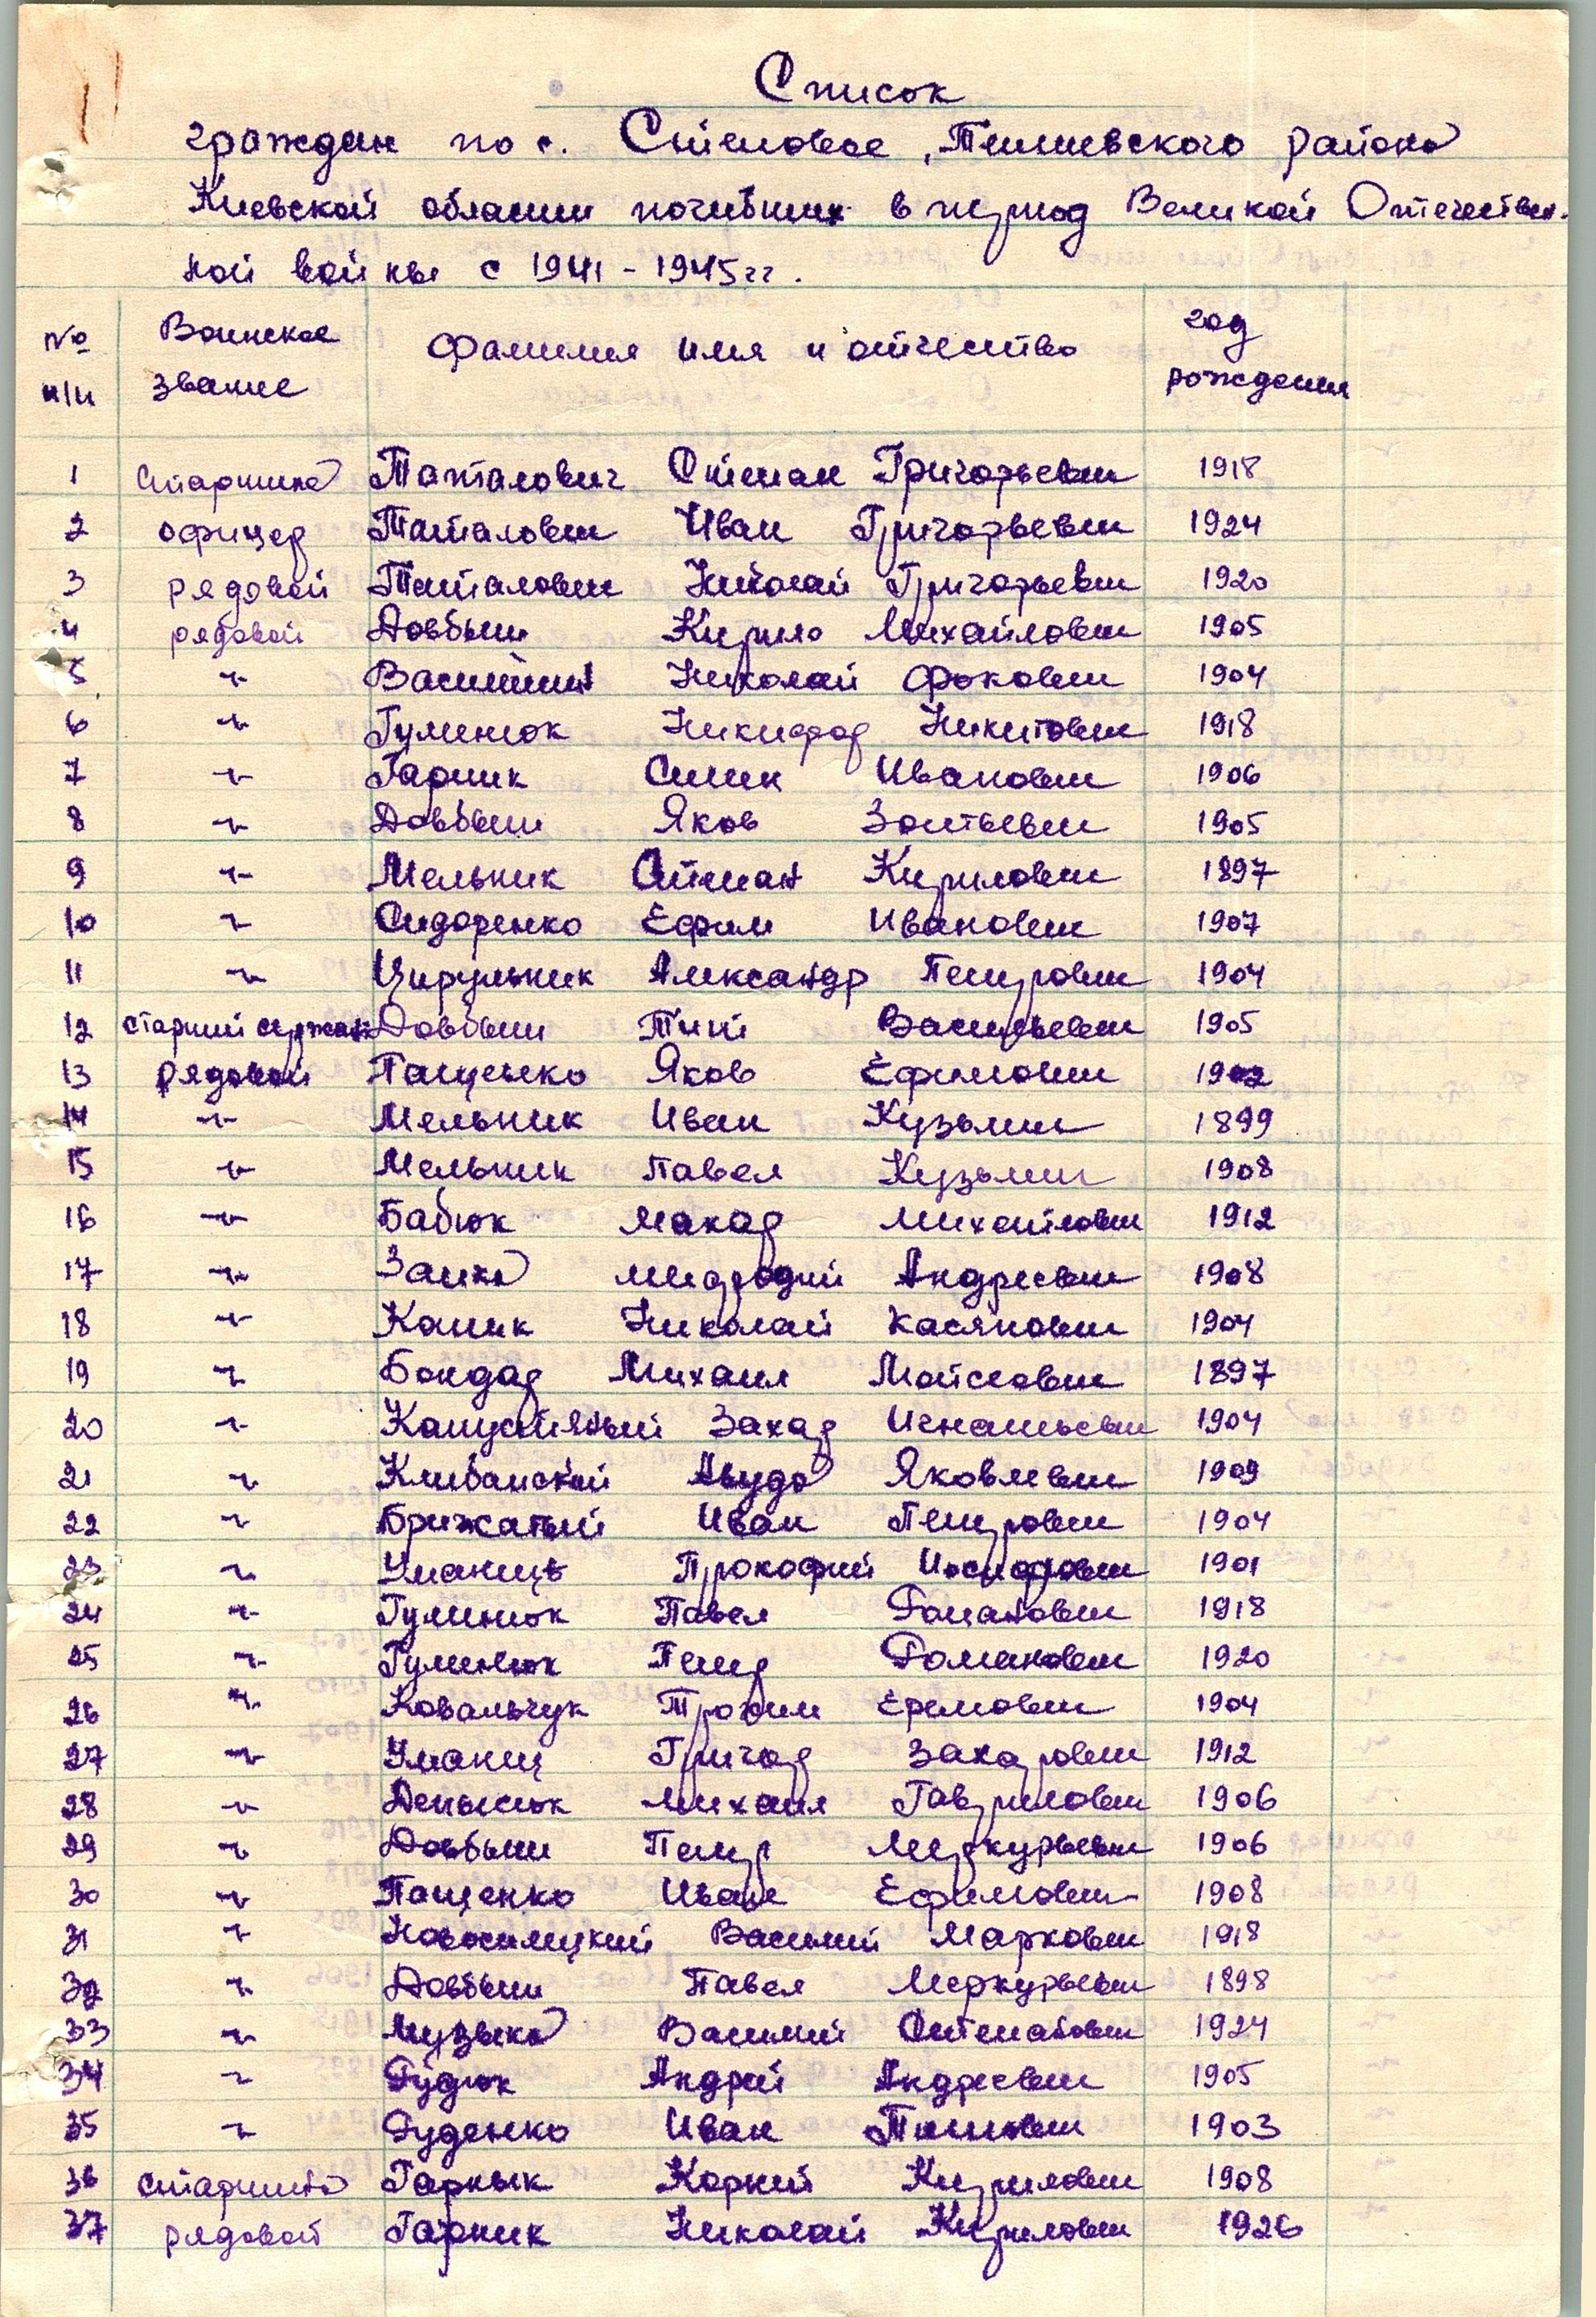 Список
граждан по с. Степовое, Тетиевского района
Киевской области погибших в период Великой Отечествен-
ной войны с 1941 - 1945 гг.
№ п/п Воинское звание Фамилия имя и отчество год рождения
1 старшина Таталович Степан Григорьевич 1918
2 офицер Таталович Иван Григорьевич 1924
3 рядовой Таталович Николай Григорьевич 1920
4 рядовой Довбыш Кирило Михайлович 1905
5 -"- Николай Фокович 1904
6 -"- Гуменюк Никифор Никитович 1918
7 -"- Гарник Иванович 1906
8 -"- Довбыш Яков Зотьевич 1905
9 -"- Мельник Степан Кирилович 1897
10 -"- Сидоренко Ефим Иванович 1907
11 -"- Цирульник Александр Петрович 1904
12 старший сержант Довбыш Тит Васильевич 1905
13 рядовой Пащенко Яков Ефимович 1902
14 -"- Мельник Иван Кузьмич 1899
15 -"- Мельник Павел Кузьмич 1908
16 -"- Бабюк Макар Михайлович 1912
17 -"- Заика Андреевич 1908
18 -"- Коник Николай Касянович 1904
19 -"- Бондар Михаил Мойсеович 1897
20 -"- Капустяный Захар Игнатьевич 1904
21 -"- Клибанский Яковлевич 1909
22 -"- Брижатый Иван Петрович 1904
23 -"- Уманець Прокофий Иосифович 1901
24 -"- Гуменюк Павел Романович 1918
25 -"- Гуменюк Петр Романович 1920
26 -"- Ковальчук Трохим Еремович 1904
27 -"- Уманец Григор Захарович 1912
28 -"- Денысюк Михаил Гаврилович 1906
29 -"- Довбыш Петр Меркурьевич 1906
30 -"- Пащенко Иван Ефимович 1908
31 -"- Новосилецкий Василий Маркович 1918
32 -"- Довбыш Павел Меркурьевич 1898
33 -"- Музыка Василий Степанович 1924
34 -"- Рудюк Андрей Андреевич 1905
35 -"- Руденко Иван Титович 1903
36 старшина Гарнык Корний Кирилович 1908
37 рядовой Гарник Николай Кирилович 1926